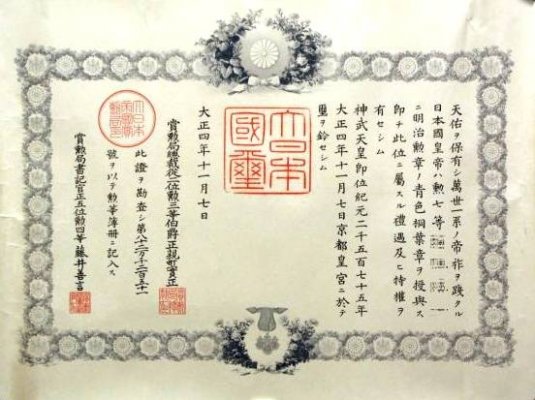 天佑ヲ保有シ萬世一系ノ帝祚ヲ踐タル
日本國皇帝ハ勲七等
ニ明治勲章ノ青色桐葉章ヲ授與ス
即チ此位ニ屬スル禮遇及ヒ特權ヲ
有セシム
神武天皇即位紀元二千五百七十五年
大正四年十一月七日京都皇宮ニ於テ
璽ヲ鈐セシム
大日本國璽
大正四年十一月七日
賞勲局總裁從二位勲三等伯爵正親町實正
此證ヲ勘査シ第八十二万十二百三十一
號ヲ以テ勲等簿冊ニ記入ス
賞勲局書記官正五位勲四等藤井善言